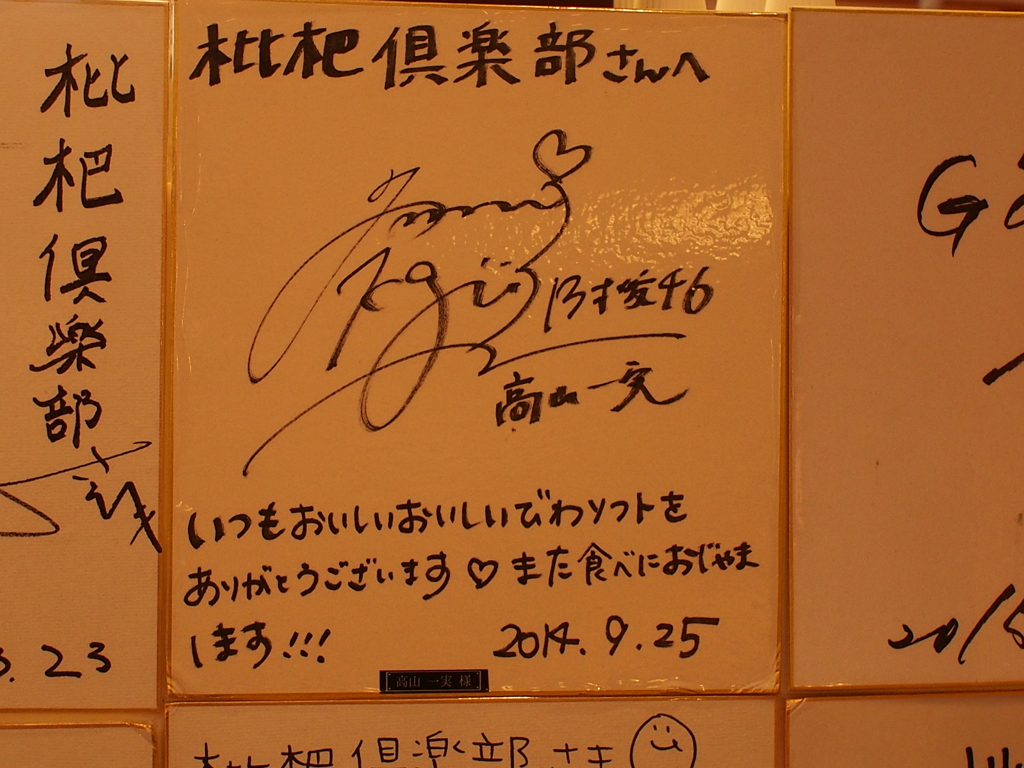 枇杷倶楽部
3.23
枇杷倶楽部さんへ
乃木坂46
高山一実
いつもおいしいおいしいびわソフトを
ありがとうございます♡また食べにおじゃま
します!!!
2014.9.25
高山 一実 様
枇杷倶楽部さま
G
201